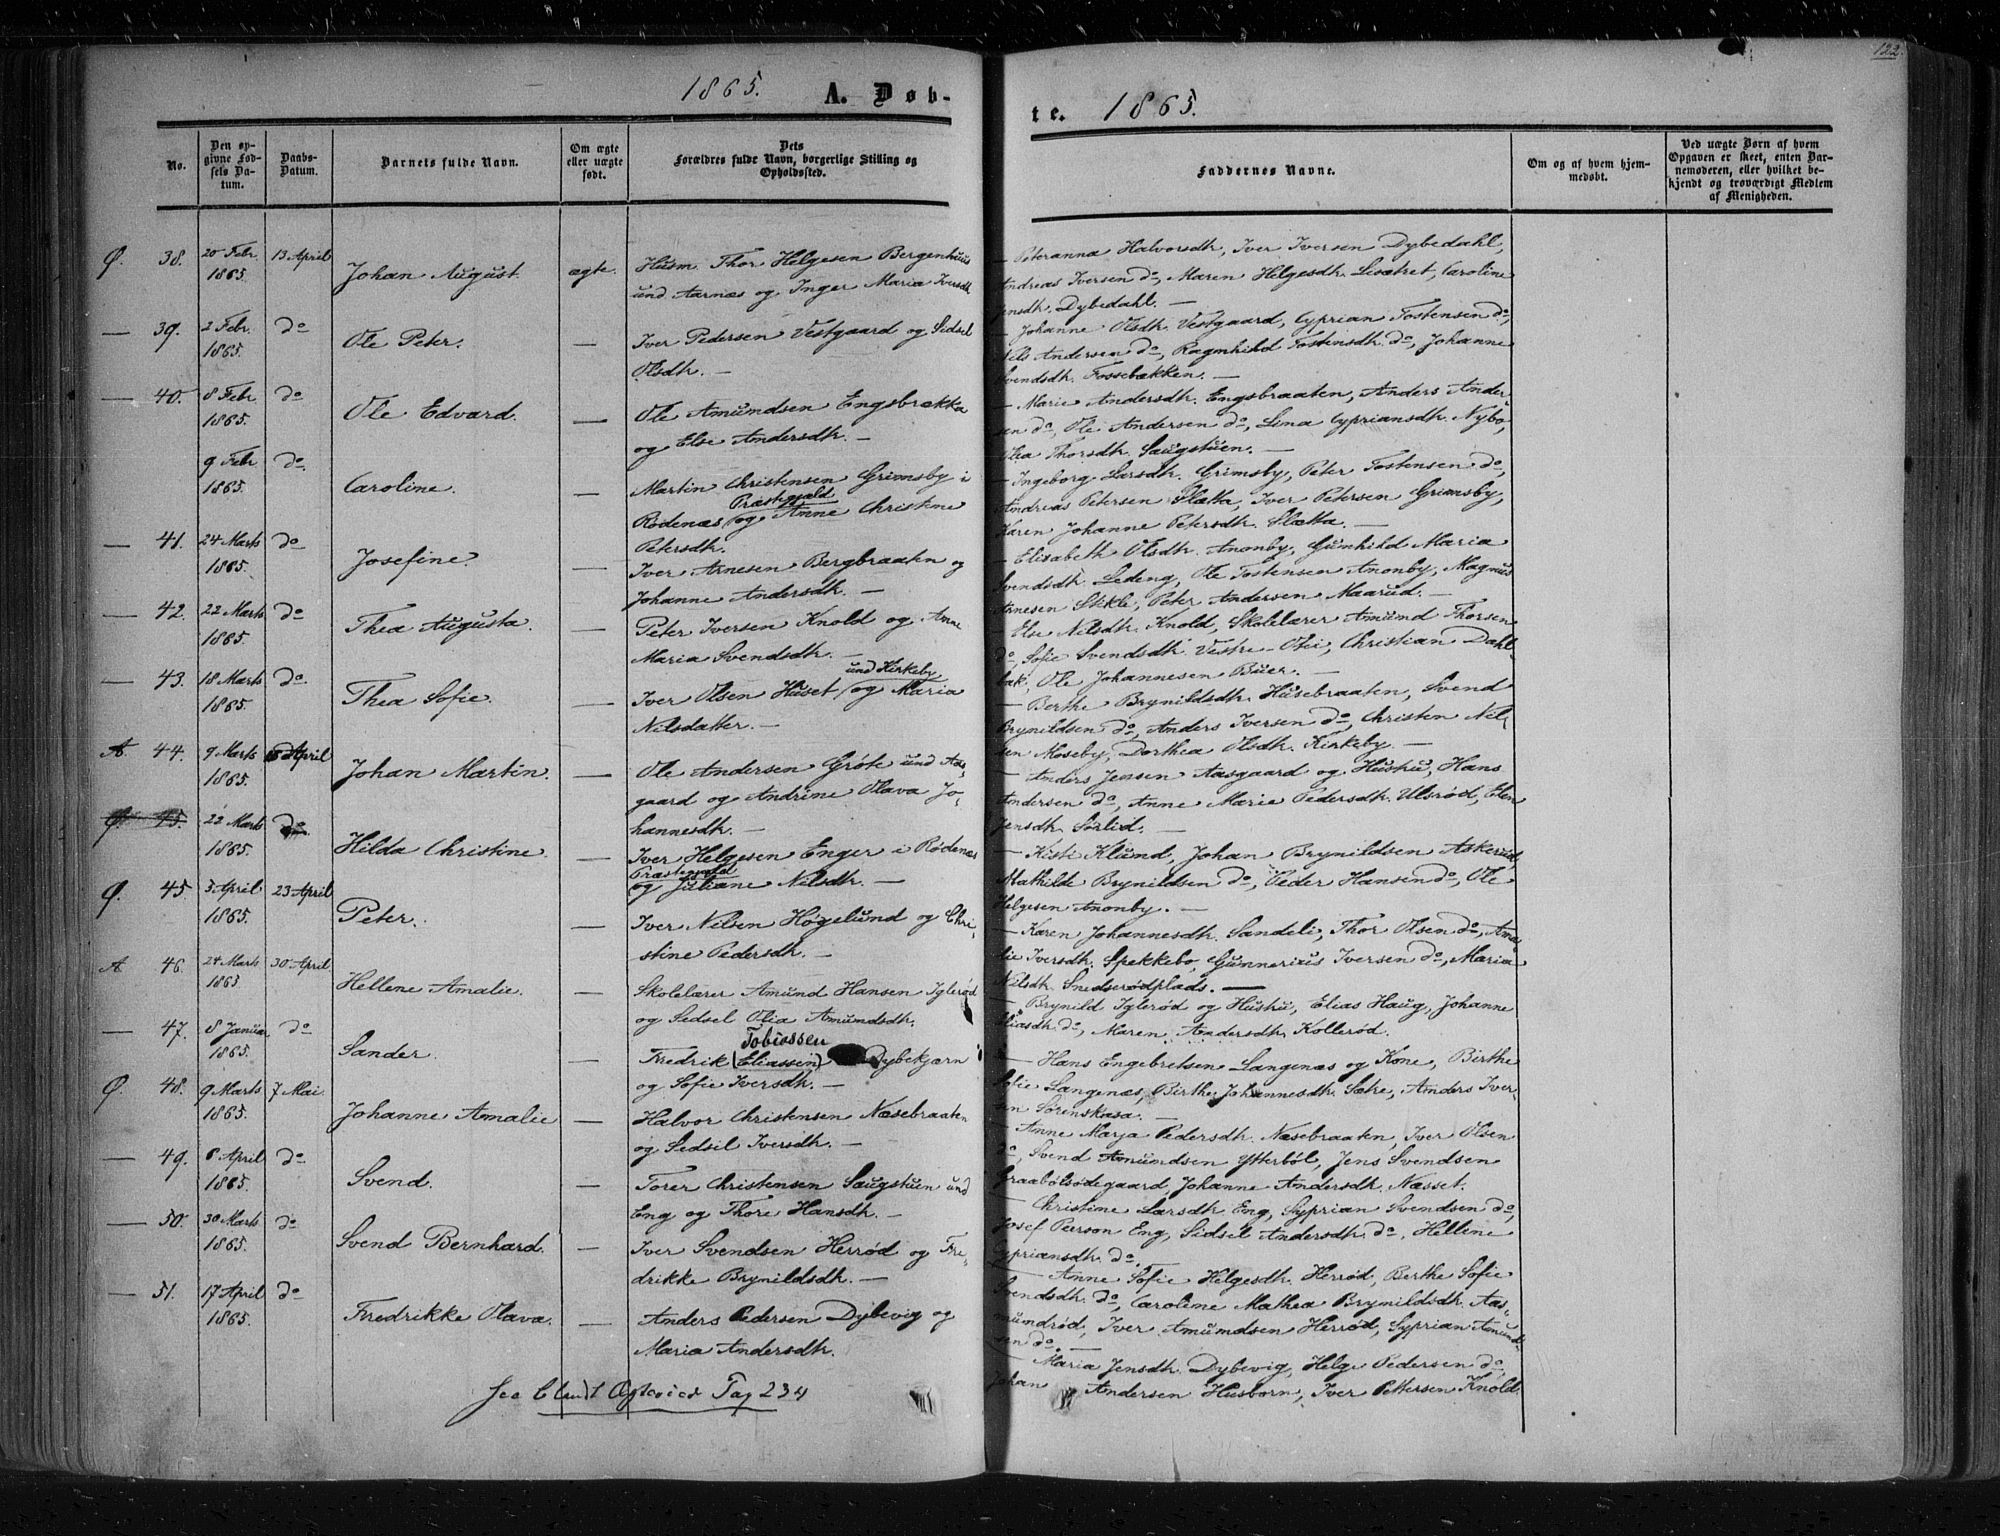 122.
1865. A. Døb-
te. 1865.
No.
Den op-
givne Fød-
sels Da-
tum.
Daabs-
Datum.
Barnets fulde Navn.
Om ægte
eller uægte
født.
Dets
Forældres fulde Navn, borgerlige Stilling og
Opholdssted.
Faddernes Navne.
Om og af hvem hjem-
medøbt.
Ved uægte Børn af hvem
Opgaven er skeet, enten Bar-
nemoderen, eller hvilket be-
kjendt og troværdigt Medlem
af Menigheden.
Ø. 38. 20 Febr. 1865. 13 April Johan August. ægte. Husm. Thor Helgesen Bergenhuus
und Aarnæs og Inger Maria Iversdh
— Peteranna Halvorsdh, Iver Iversen Dybedahl,
Andreas Iversen do, Maren Helgesdh. Lisætret, Caroline
Jensdh. Dybedahl. —
— 39. 2 Febr. 1865. do Ole Peter. — Iver Pedersen Vestgaard og Sidsel
Olsdh. —
— Johanne Olsdh. Vestgaard, Cyprian Tostensen do,
Nils Andersen do, Ragnhild Tostensdh. do, Johanne
Svendsdh. Fossebækken. —
— 40. 8 Febr 1865. do Ole Edvard. — Ole Amundsen Engsbrække
og Else Andersdh. —
— Marie Andersdh. Engsbraaten, Anders Ander-
sen do, Ole Andersen do, Lina Cypriansdh. Nybo,
Olea Thorsdh. Saugstuen. —
9 Febr 1865. do. Caroline. Martin Christensen Grimsby i
Rødenæs Præstegjæld og Anne Christine
Petersdh.
— Ingeborg Larsdh. Grimsby, Peter Tostensen do,
Andreas Petersen Slætta, Iver Petersen Grimsby,
Karen Johanne Petersdh. Slætta. —
— 41. 24 Marts 1865. do Josefine. — Iver Arnesen Bergbraaten og
Johanne Andersdh. —
— Elisabeth Olsdh. Anonby, Gunhild Maria
Svendsdh. Ledeng, Ole Tostensen Anonby, Magnus
Arnesen Sikle, Peter Andersen Maarud. —
— 42. 22 Marts 1865. do Thea Augusta. — Peter Iversen Knold og Anne
Maria Svendsdh. —
— Else Nilsdh. Knold, Skolelærer Amund Thorsen
do, Sofie Svendsdh. Vestre-Otei, Christian Dahl-
bæk, Ole Johannesen Buer. —
— 43. 18 Marts 1865. do Thea Sofie. — Iver Olsen Huset und Kirkeby og Maria
Nilsdatter. —
— Berthe Brynildsdh. Husebraaten, Svend
Brynildsen do, Anders Iversen do, Christen Nil-
sen Moseby, Dorthea Olsdh. Kirkeby. —
A 44. 9 Marts 1865. April Johan Martin. — Ole Andersen Grøte und Aas-
gaard og Andrine Olava Jo-
hannesdh. —
— Anders Jensen Aasgaard og Hustru, Hans
Andersen do, Anne Marie Pedersdh. Ulsrød, Elen
Jensdh Sørlid. —
Ø. 45. 22 Marts 1865. do Hilda Christine. — Iver Helgesen Enger i Rødenæs
Præstegjæld og Juliane Nilsdh. —
— Kisti Klund, Johan Brynildsen Askerud
Mathilde Brynildsen do, Peder Hansen do, Ole
Helgesen Anonby. —
Ø. 45. 3 April 1865. 23 April Peter. — Iver Nilsen Høgelund og Chri-
stine Pedersdh. —
— Karen Johannesdh. Sandeli, Thor Olsen do, Ama-
lie Iversdh. Spekkebo, Gunnerius Iversen do, Maria
Nilsdh. Snedserødplads. —
A 46. 24 Marts 1865 30 April Hellene Amalie. — Skolelærer Amund Hansen Iglerød
og Sedsel Olia Amundsdh.
— Brynild Iglerød og Hustru, Elias Haug, Johanne
Eliasdh do, Maren Andersdh. Kollerød.
— 47. 8 Januar 1865. do Sander. — Fredrik (Eliassen) Tobiassen Dybekjærn
og Sofie Iversdh. —
— Hans Engebretsen Langenæs og Kone, Birthe
Sofie Langenæs, Birthe Johannesdh. Sætre, Anders Iver-
sen Sørenskasa. —
Ø. 48. 9 Marts 1865. 7 Mai. Johanne Amalie — Halvor Christensen Næsebraaten
og Sedsil Iversdh. —
— Anne Marja Pedersdh. Næsebraaten, Iver Olsen
do, Svend Amundsen Ytterböl, Jens Svendsen
Graabölsødegaard, Johanne Andersdh. Næsset.
— 49. 6 April 1865. do Svend. — Torer Christensen Saugstuen und
Eng og Thore Hansdh. —
— Christine Larsdh. Eng, Syprian Svendsen do,
Josef Peerson Eng, Sidsel Andersdh. do, Helline
Cypriansdh. do
— 50. 30 Marts 1865. do Svend Bernhard. — Iver Svendsen Herrød og Fre-
drikke Brynildsdh. —
— Anne Sofie Helgesdh. Herrød, Berthe Sofie
Svendsdh. do, Caroline Mathea Brynildsdh. Aas-
mundrød, Iver Amundsen Herrød, Syprian Amund-
sen do.
— 51. 17 April 1865. do Fredrikke Olava. — Anders Pedersen Dybevig og
Maria Andersdh.
— Maria Jensdh. Dybevig, Helge Pedersen do,
Johan Andersen Husborn, Iver Pettersen Knold.
Pag 234